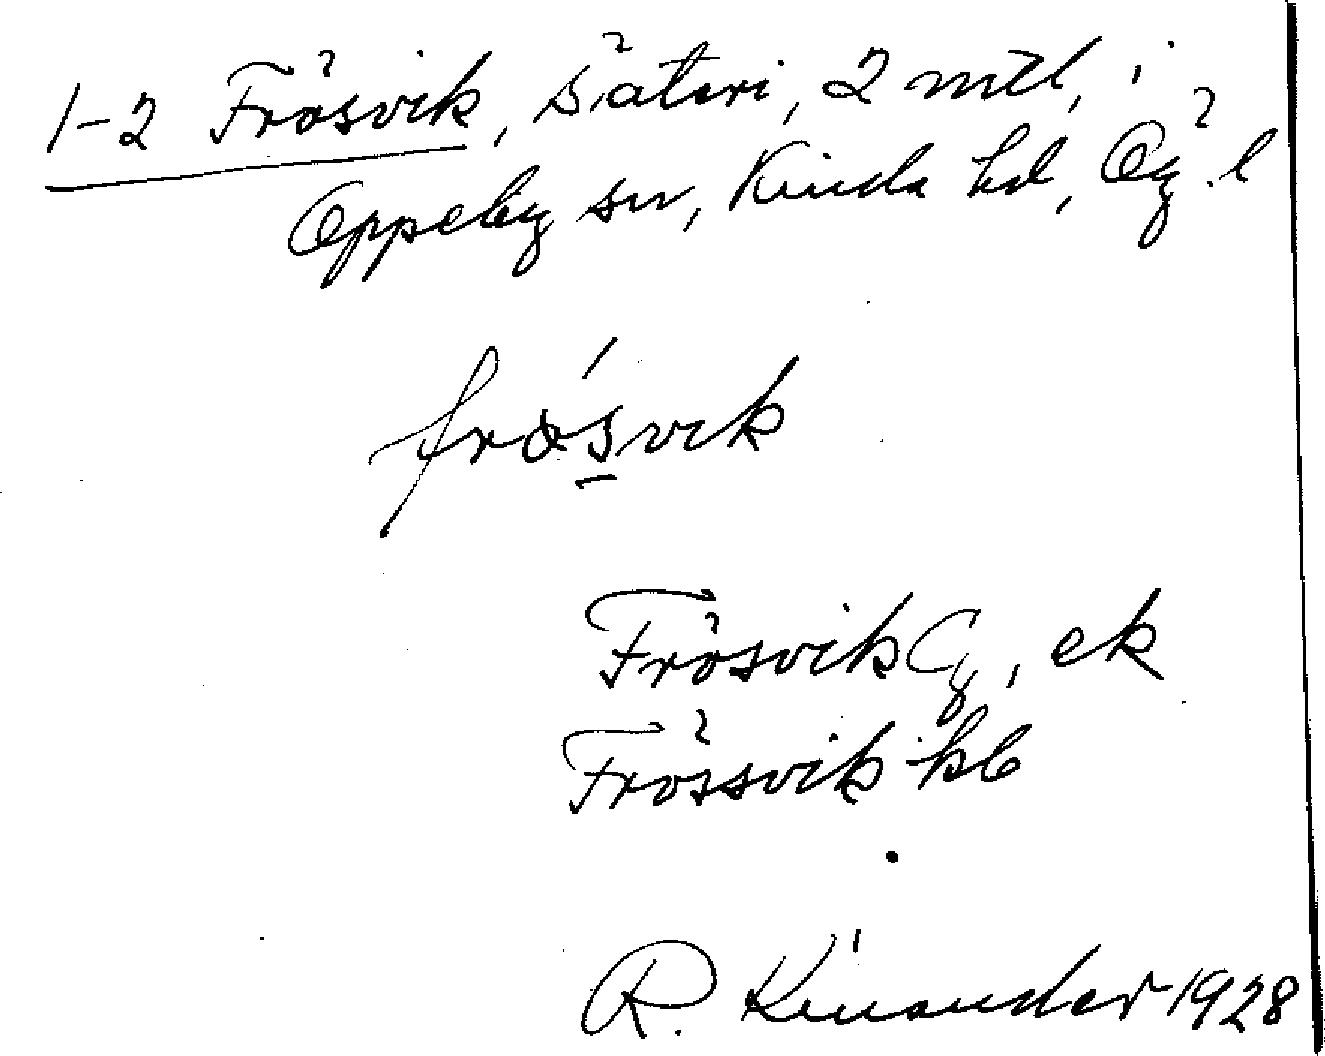 1-2 Frösvik, Säteri, 2 mtl, i
Oppeby sn, Kinda hd, Ög. l
frǿsvik
Frösvik Cg, ek
Frössvik kb
R. Kinander 1928